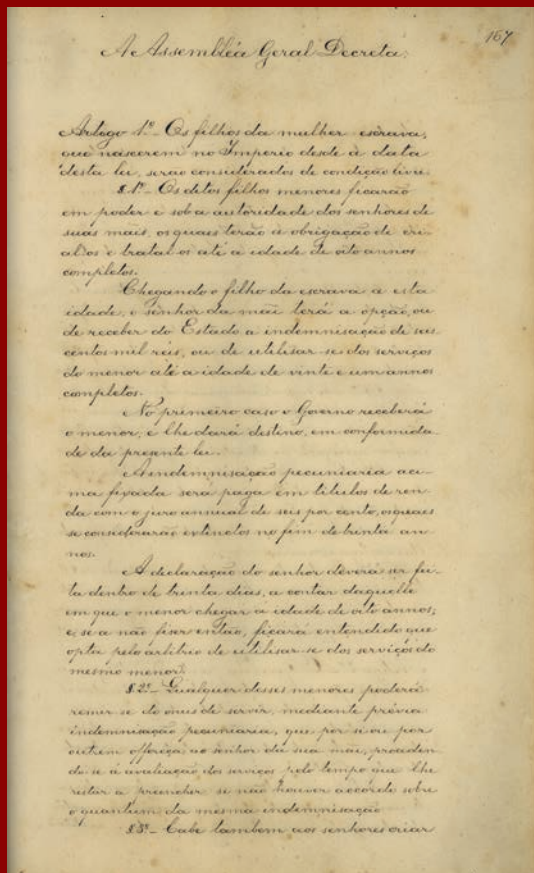 167
A Assembléa Geral Decreta:
Artogo 1º - Os filhos da mulher escrava,
que nascerem no Imperio desde a data
desta lei, serão considerados de condição livre.
§ 1º - Os ditos filhos menores ficarão
em poder e sob a autoridade dos senhores de
suas mães, os quaes terão a obrigação de cri-
al-os e tratal-os até a idade de oito annos
completos.
Chegando o filho da escrava a esta
idade, o senhor da mãi terá a opção, ou
de receber do Estado a indemnisação de seis
centos mil réis, ou de utilisar-se dos serviços
do menor até a idade de vinte e um annos
completos.
No primeiro caso o Governo receberá
o menor, e lhe dará destino, em conformida-
de da presente lei.
A indemnisação pecuniaria aci-
ma fixada será paga em titulos de ren-
da com o juro annual de seis por cento, os quaes
se considerarão extinctos no fim de trinta an-
nos.
A declaração do senhor deverá ser fei-
ta dentro de trinta dias, a contar daquelle
em que o menor chegar a idade de oito annos;
e, se a não fizer então, ficará entendido que
opta pelo arbitrio de utilisar-se dos serviços do
mesmo menor.
§ 2º - Qualquer desses menores poderá
remir-se do onus de servir, mediante prévia
indemnisação pecuniaria, que por si ou por
outrem offereça ao senhor da sua mãi, proceden-
do-se á avaliação dos serviços pelo tempo que lhe
restar a preencher se não houver accordo sobre
o quantum da mesma indemnisação
§ 3º - Cabe tambem aos senhores criar